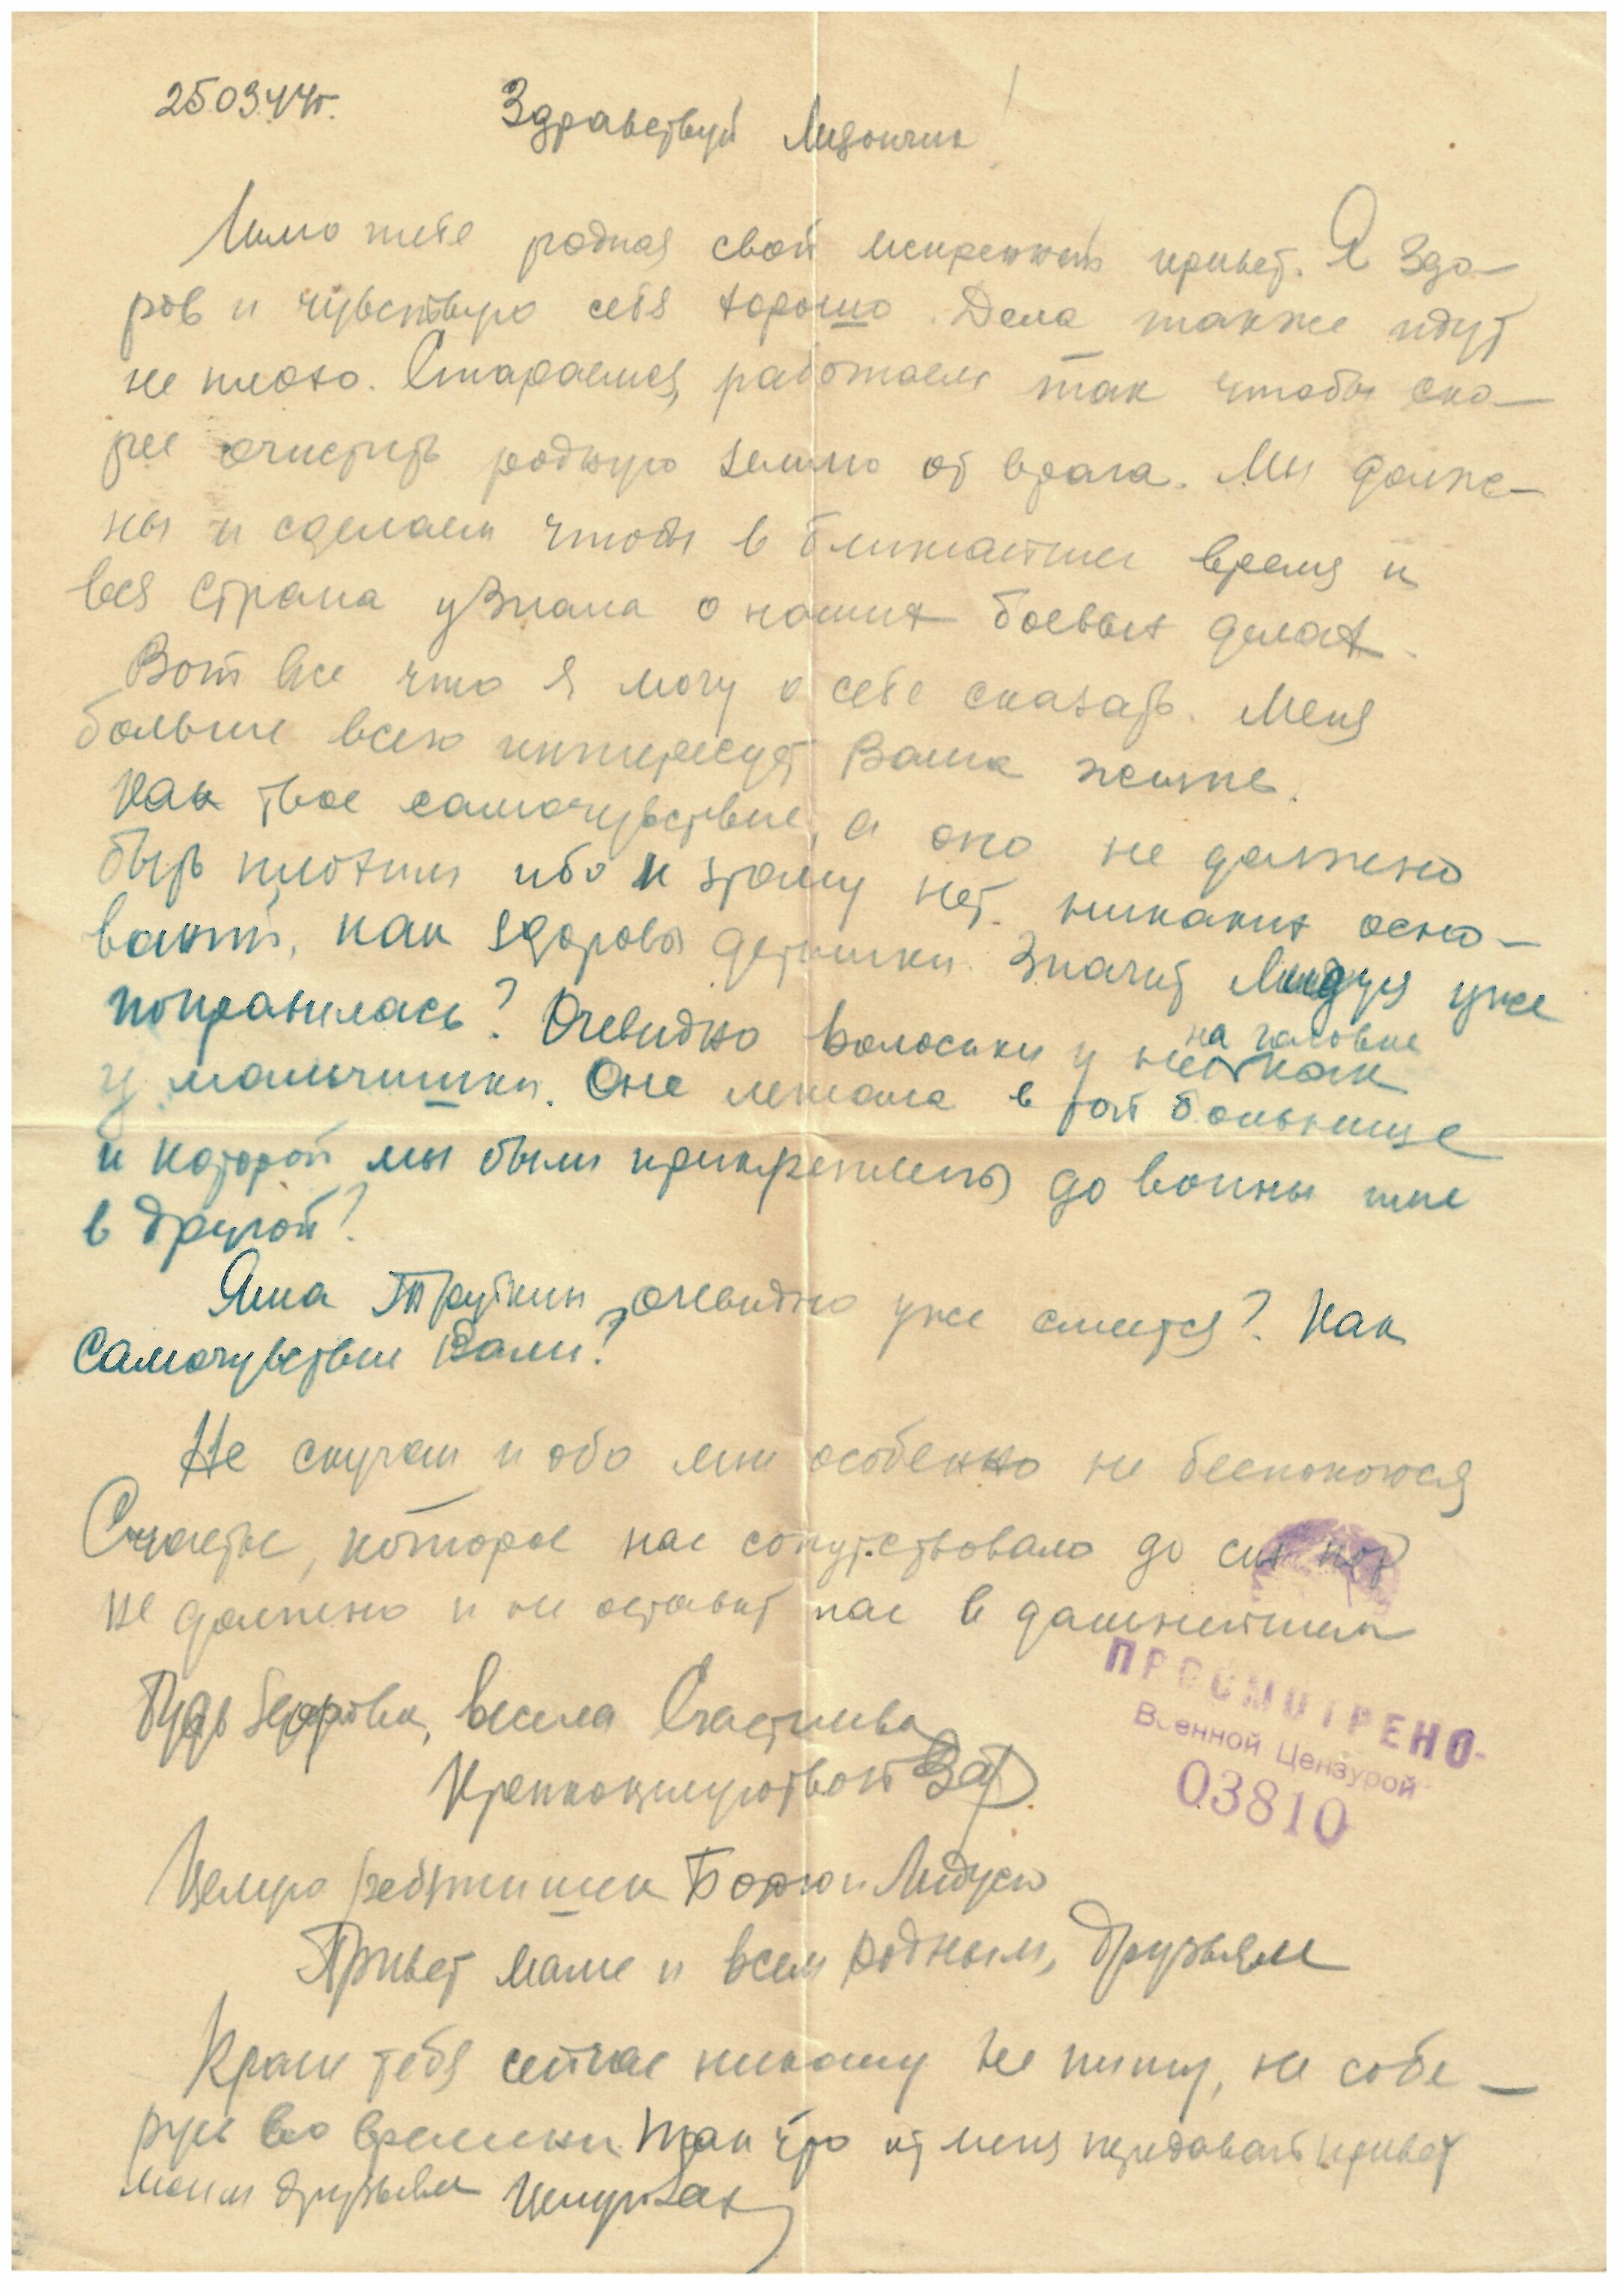 25.03.44г. Здравствуй Лидончик!
Шлю тебе родная свой искренний привет. Я здо–
ров и чувствую себя хорошо. Дела также идут
не плохо. Стараемся, работаем так чтобы ско–
рее очистить родную землю от врага. Мы долж–
ны и сделаем чтобы в ближайшее время и
вся страна узнала о наших боевых делах.
Вот все что я могу о себе сказать. Меня
больше всего интересует Ваша жизнь.
Как твое самочувствие, а оно не должно
быть плохим ибо к этому нет никаких осно–
ваний, как здоровы детишки. Значит Лидуся уже
поправилась? Очевидно волосики у нее на головке как
у мальчишки. Она лежала в той больнице
к которой мы были прикреплены до войны или
в другой?
Яша Трубкин, очевидно уже смеется? Как
самочувствие Вали?
Не скучай и обо мне особенно не беспокойся
Счастье, которое нас сопутствовало до сих пор
не должно и не оставит нас в дальнейшем
Будь здорова, весела Счастлива
Крепкоцелующий Зах
Целую ребятишек Борю и Лидусю
Привет маме и всем родным, друзьям
Кроме тебя сейчас никому не пишу, не собе–
русь во времени. Так что от меня передавай привет
моим друзьям Целую Зах
ПРОСМОТРЕНО
Военной Цензурой
03810